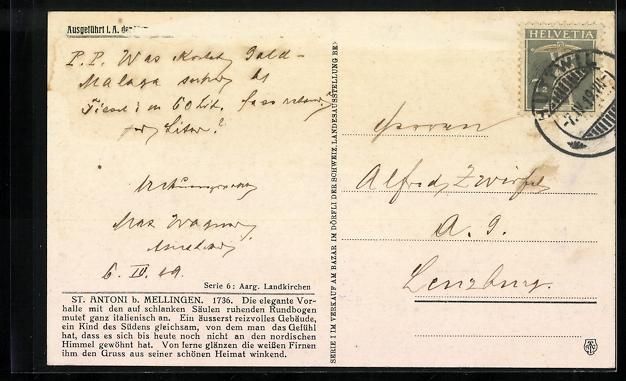 Ausgeführt i. A. der
P. P. Was kostet Gold-
Malaga
60 Lit.,
per Liter?
Max Wagner
6. IV. 19
Serie 6: Aarg. Landkirchen
ST. ANTONI b. MELLINGEN. 1736. Die elegante Vor-
halle mit den auf schlanken Säulen ruhenden Rundbogen
mutet ganz italienisch an. Ein äusserst reizvolles Gebäude,
ein Kind des Südens gleichsam, von dem man das Gefühl
hat, dass es sich bis heute noch nicht an den nordischen
Himmel gewöhnt hat. Von ferne glänzen die weißen Firnen
ihm den Gruss aus seiner schönen Heimat winkend.
SERIE I IM VERKAUF AM BAZAR IM DÖRFLI DER SCHWEIZ. LANDESAUSSTELLUNG BE
HELVETIA
Herren
Alfred Zweifel
A. G.
Lenzburg.